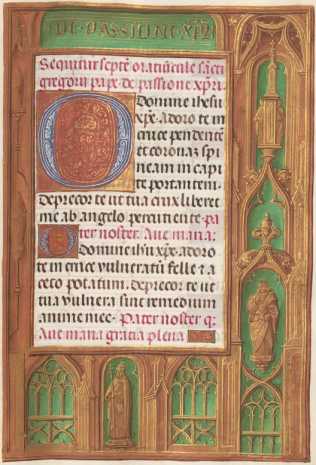 DE · PASSIONE · XPI
Sequitur septē oratiūcule sācti
gregorii pape de passione xp̄ri.
O Domine ihesu
xp̄e. adoro te in
cruce pendentē
et coronā spi
neam in capi
te portantem.
deprecor te ut tua crux liberet
me ab angelo percutiente. pa
ter noster. Aue maria.
O Domine ihū xp̄e. adoro
te in cruce vulneratū felle ⁊ a
ceto potatum. deprecor te ut
tua vulnera sint remedium
anime mee. Pater noster q̄
Aue maria gracia plena